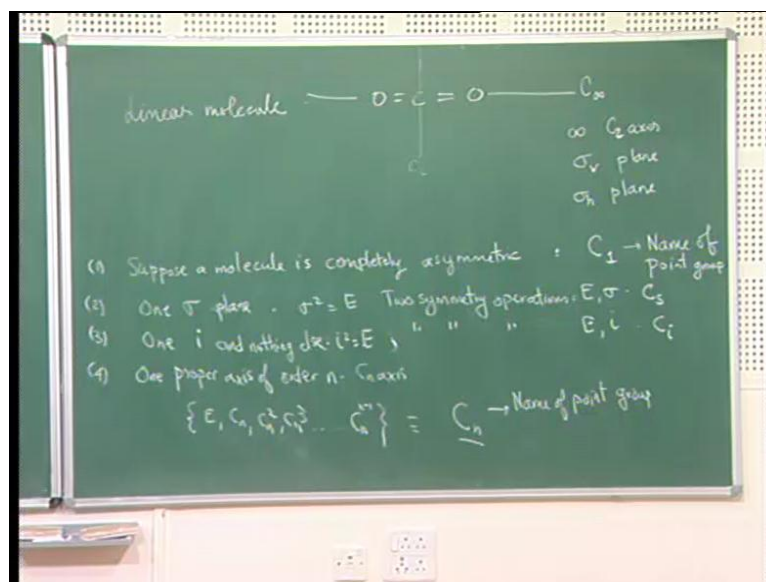 Linear molecule. —— O = C = O —— C∞
C₂
∞ C₂ axes
σᵥ plane
σₕ plane
(1) Suppose a molecule is completely asymmetric : C₁ → Name of point group
(2) One σ plane . σ² = E Two symmetry operations = E, σ . C_s
(3) One i and nothing else . i² = E , " " " E, i . C_i
(4) One proper axis of order n - Cₙ axis
{ E, Cₙ, Cₙ², Cₙ³ ... Cₙⁿ⁻¹ } ≡ Cₙ → Name of point group